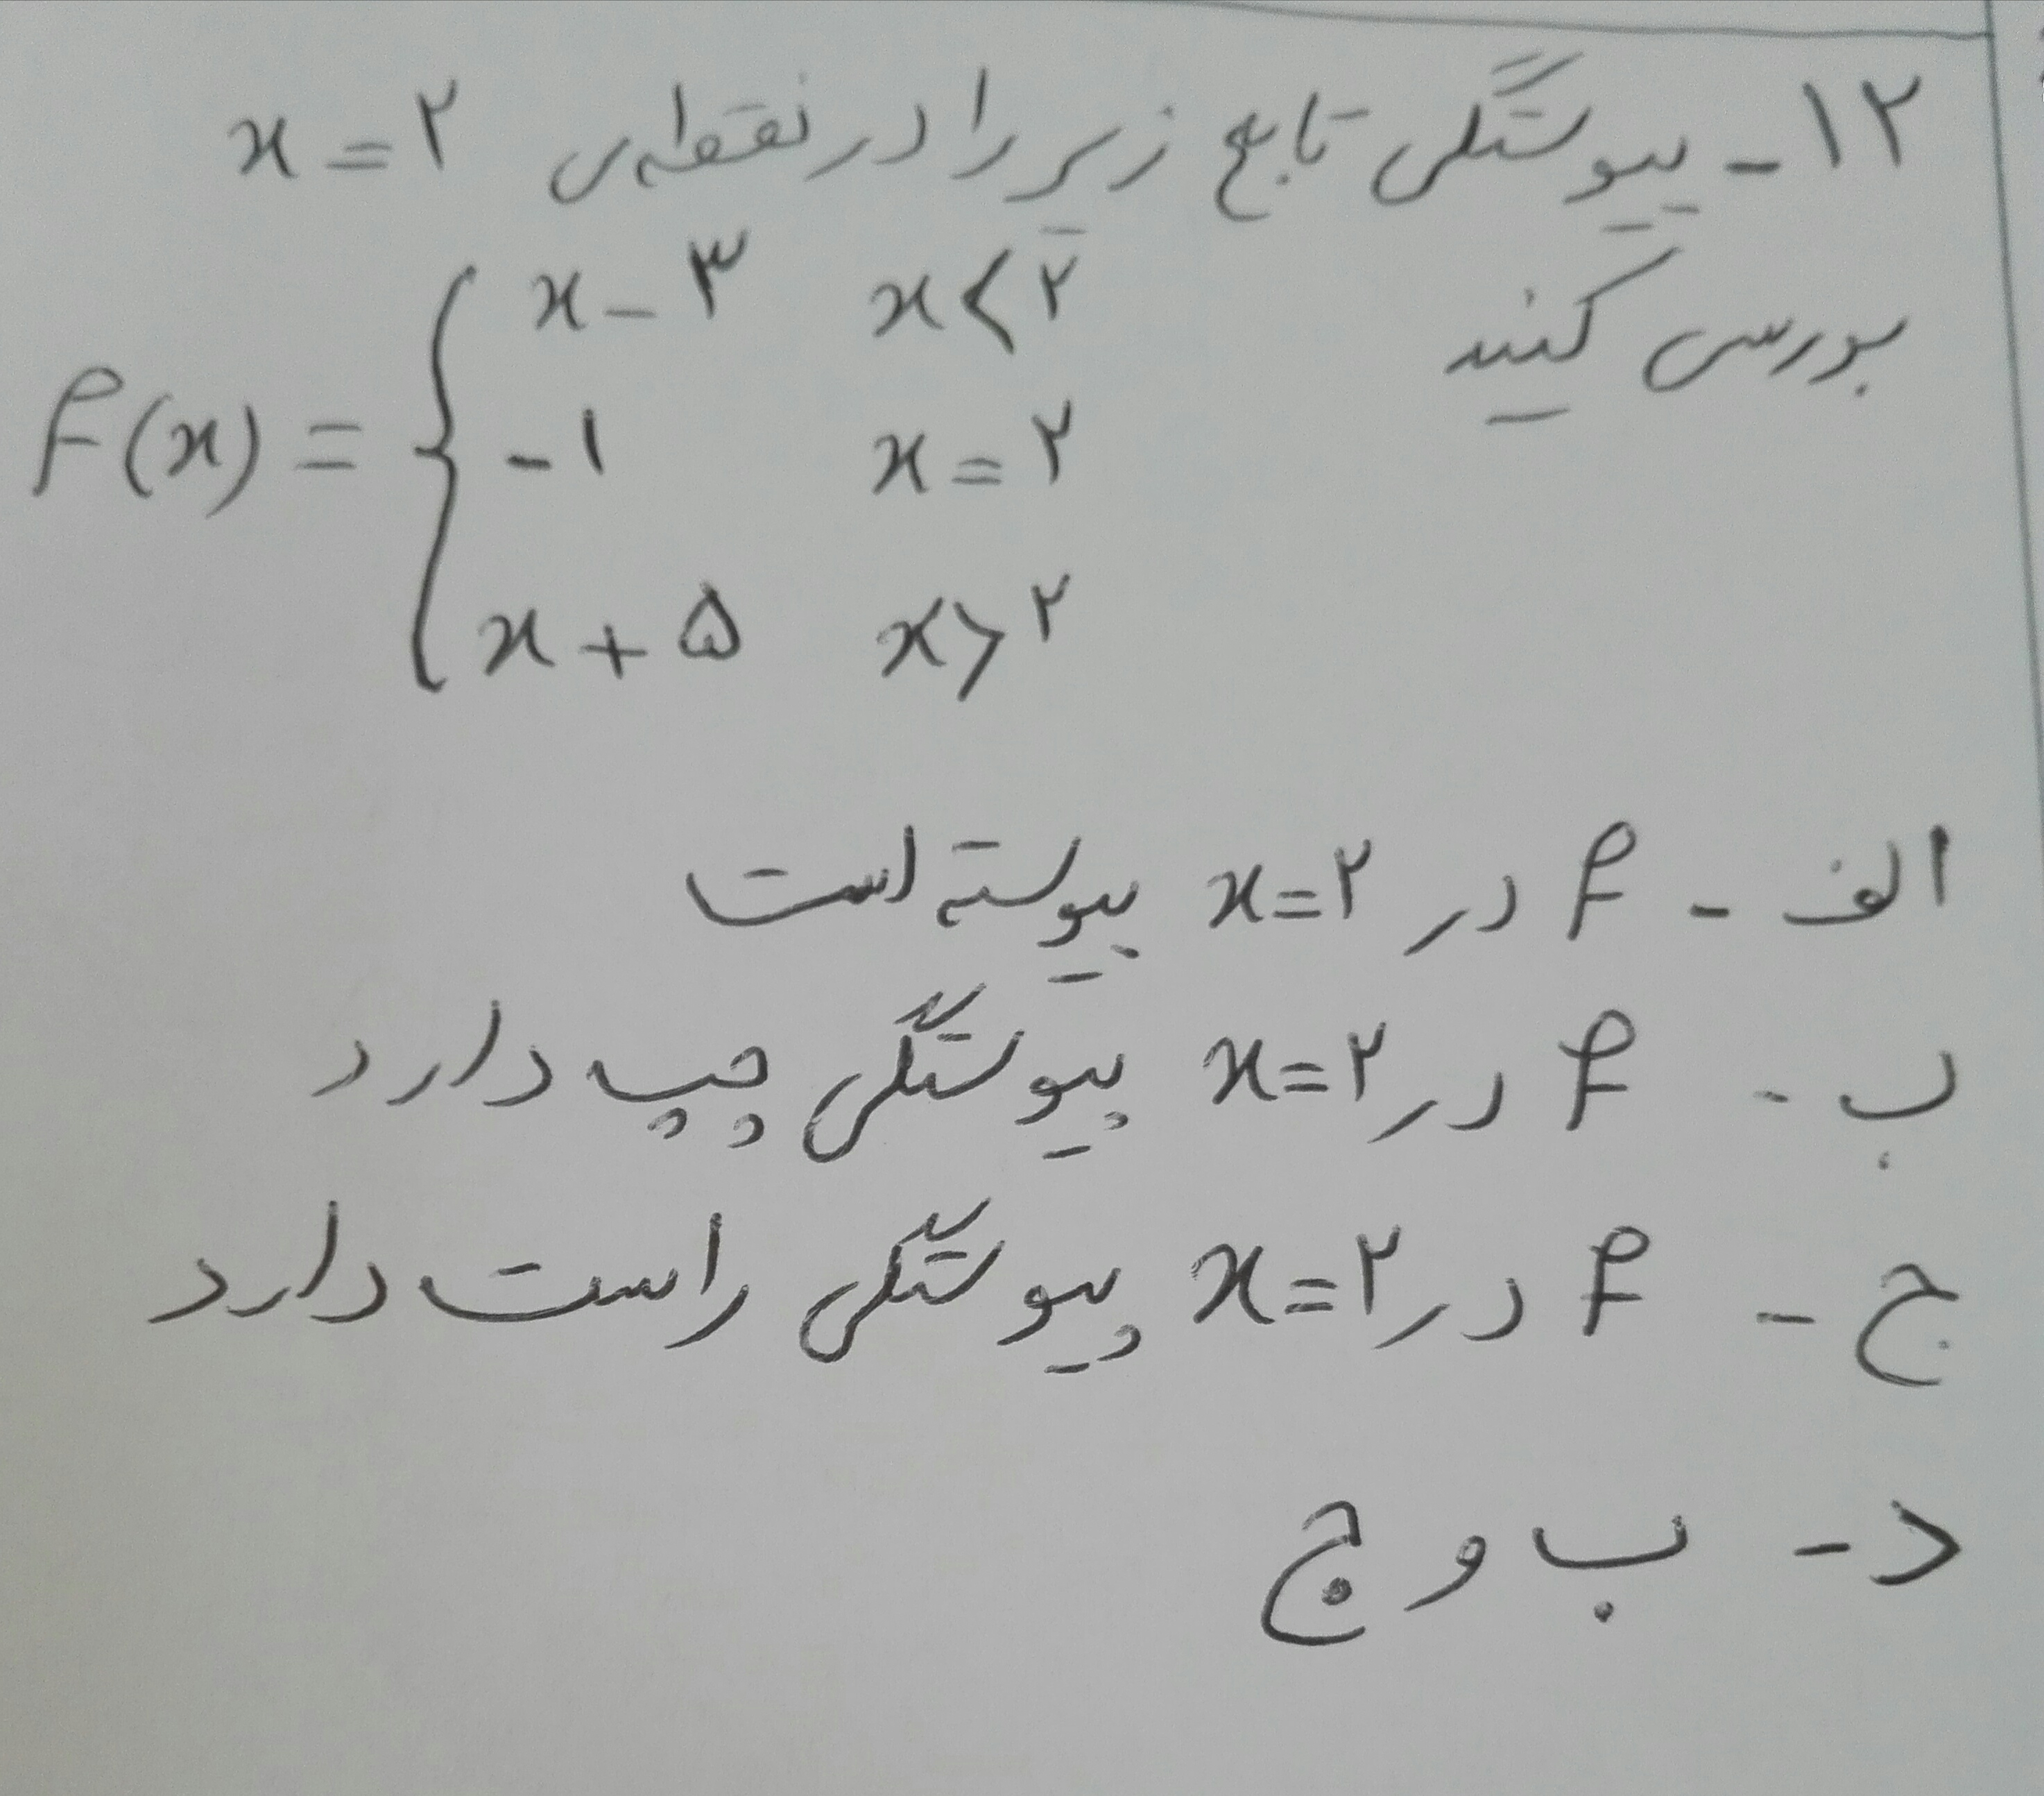 ۱۲- پیوستگی تابع زیر را در نقطه‌ی x = ۲
بررسی کنید
f(x) = { x - ۳   x < ۲
-۱   x = ۲
x + ۵   x > ۲
الف - f در x=۲ پیوسته است
ب - f در x=۲ پیوستگی چپ دارد
ج - f در x=۲ پیوستگی راست دارد
د - ب و ج